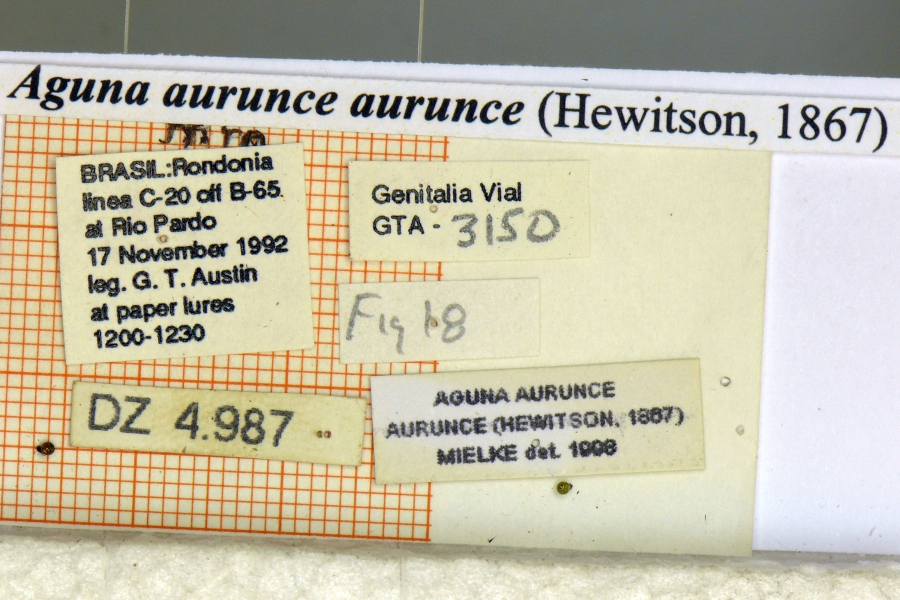 Aguna aurunce aurunce (Hewitson, 1867)
BRASIL:Rondonia
linea C-20 off B-65
at Rio Pardo
17 November 1992
leg. G. T. Austin
at paper lures
1200-1230
Genitalia Vial
GTA - 3150
Fig 18
DZ 4.987
AGUNA AURUNCE
AURUNCE (HEWITSON, 1867)
MIELKE det. 1998